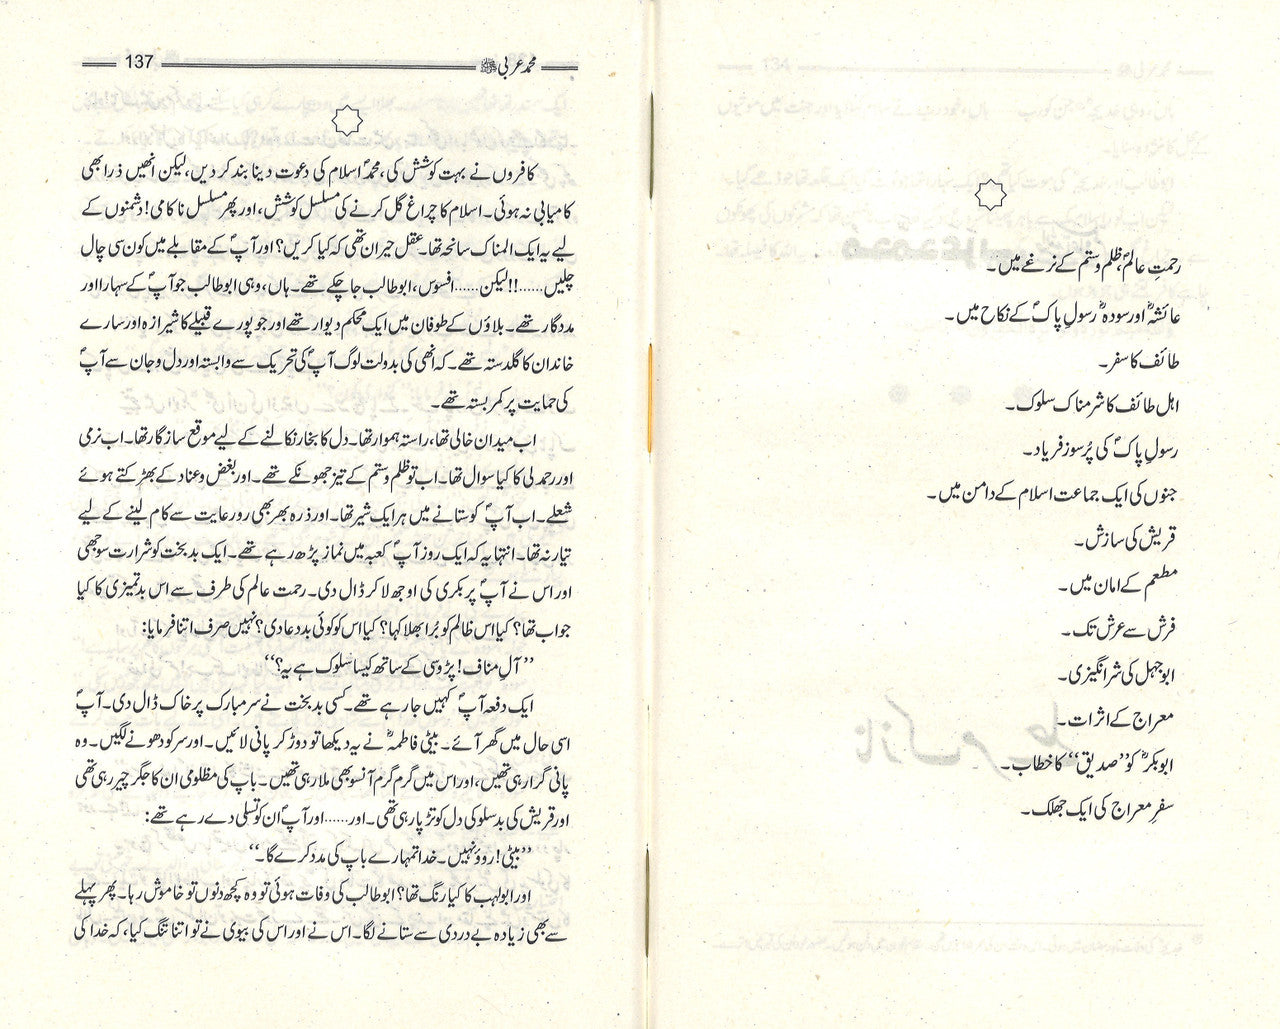 رحمتِ عالمؐ، ظلم وستم کے نرغے میں۔
عائشہؓ اور سودہؓ رسولِ پاکؐ کے نکاح میں۔
طائف کا سفر۔
اہل طائف کا شرمناک سلوک۔
رسولِ پاکؐ کی پُرسوز فریاد۔
جنوں کی ایک جماعت اسلام کے دامن میں۔
قریش کی سازش۔
مطعم کے امان میں۔
فرش سے عرش تک۔
ابوجہل کی شرانگیزی۔
معراج کے اثرات۔
ابوبکرؓ کو ’’صدیق‘‘ کا خطاب۔
سفرِ معراج کی ایک جھلک۔
محمد عربی ﷺ 137
کافروں نے بہت کوشش کی، محمدؐ اسلام کی دعوت دینا بند کر دیں، لیکن انھیں ذرا بھی
کامیابی نہ ہوئی۔ اسلام کا چراغ گل کرنے کی مسلسل کوشش، اور پھر مسلسل ناکامی! دشمنوں کے
لیے یہ ایک المناک سانحہ تھا۔ عقل حیران تھی کہ کیا کریں؟ اور آپؐ کے مقابلے میں کون سی چال
چلیں......!! لیکن...... افسوس، ابوطالب جا چکے تھے۔ ہاں، وہی ابوطالب جو آپؐ کے سہارا اور
مددگار تھے۔ بلاؤں کے طوفان میں ایک محکم دیوار تھے اور جو پورے قبیلے کا شیرازہ اور سارے
خاندان کا گلدستہ تھے۔ کہ انھی کی بدولت لوگ آپؐ کی تحریک سے وابستہ اور دل وجان سے آپؐ
کی حمایت پر کمر بستہ تھے۔
اب میدان خالی تھا، راستہ ہموار تھا۔ دل کا بخار نکالنے کے لیے موقع سازگار تھا۔ اب نرمی
اور رحمدلی کا کیا سوال تھا۔ اب تو ظلم وستم کے تیز جھونکے تھے۔ اور بغض وعناد کے بھڑکتے ہوئے
شعلے۔ اب آپؐ کو ستانے میں ہر ایک شیر تھا۔ اور ذرہ بھر بھی رو رعایت سے کام لینے کے لیے
تیار نہ تھا۔ انتہا یہ کہ ایک روز آپؐ کعبہ میں نماز پڑھ رہے تھے۔ ایک بدبخت کو شرارت سوجھی
اور اس نے آپؐ پر بکری کی اوجھ لاکر ڈال دی۔ رحمت عالم کی طرف سے اس بدتمیزی کا کیا
جواب تھا؟ کیا اس ظالم کو بُرا بھلا کہا؟ کیا اس کو کوئی بددعا دی؟ نہیں صرف اتنا فرمایا:
’’آلِ مناف! پڑوسی کے ساتھ کیسا سلوک ہے یہ؟‘‘
ایک دفعہ آپؐ کہیں جارہے تھے۔ کسی بدبخت نے سر مبارک پر خاک ڈال دی۔ آپؐ
اسی حال میں گھر آئے۔ بیٹی فاطمہؓ نے یہ دیکھا تو دوڑ کر پانی لائیں۔ اور سر کو دھونے لگیں۔ وہ
پانی گرارہی تھیں، اور اس میں گرم گرم آنسو بھی ملا رہی تھیں۔ باپ کی مظلومی ان کا جگر چیر رہی تھی
اور قریش کی بدسلوکی دل کو تڑپا رہی تھی۔ اور...... اور آپؐ ان کو تسلی دے رہے تھے:
’’بیٹی! روؤ نہیں۔ خدا تمہارے باپ کی مدد کرے گا۔‘‘
اور ابولہب کا کیا رنگ تھا؟ ابوطالب کی وفات ہوئی تو وہ کچھ دنوں تو خاموش رہا۔ پھر پہلے
سے بھی زیادہ بے دردی سے ستانے لگا۔ اس نے اور اس کی بیوی نے تو اتنا تنگ کیا، کہ خدا کی